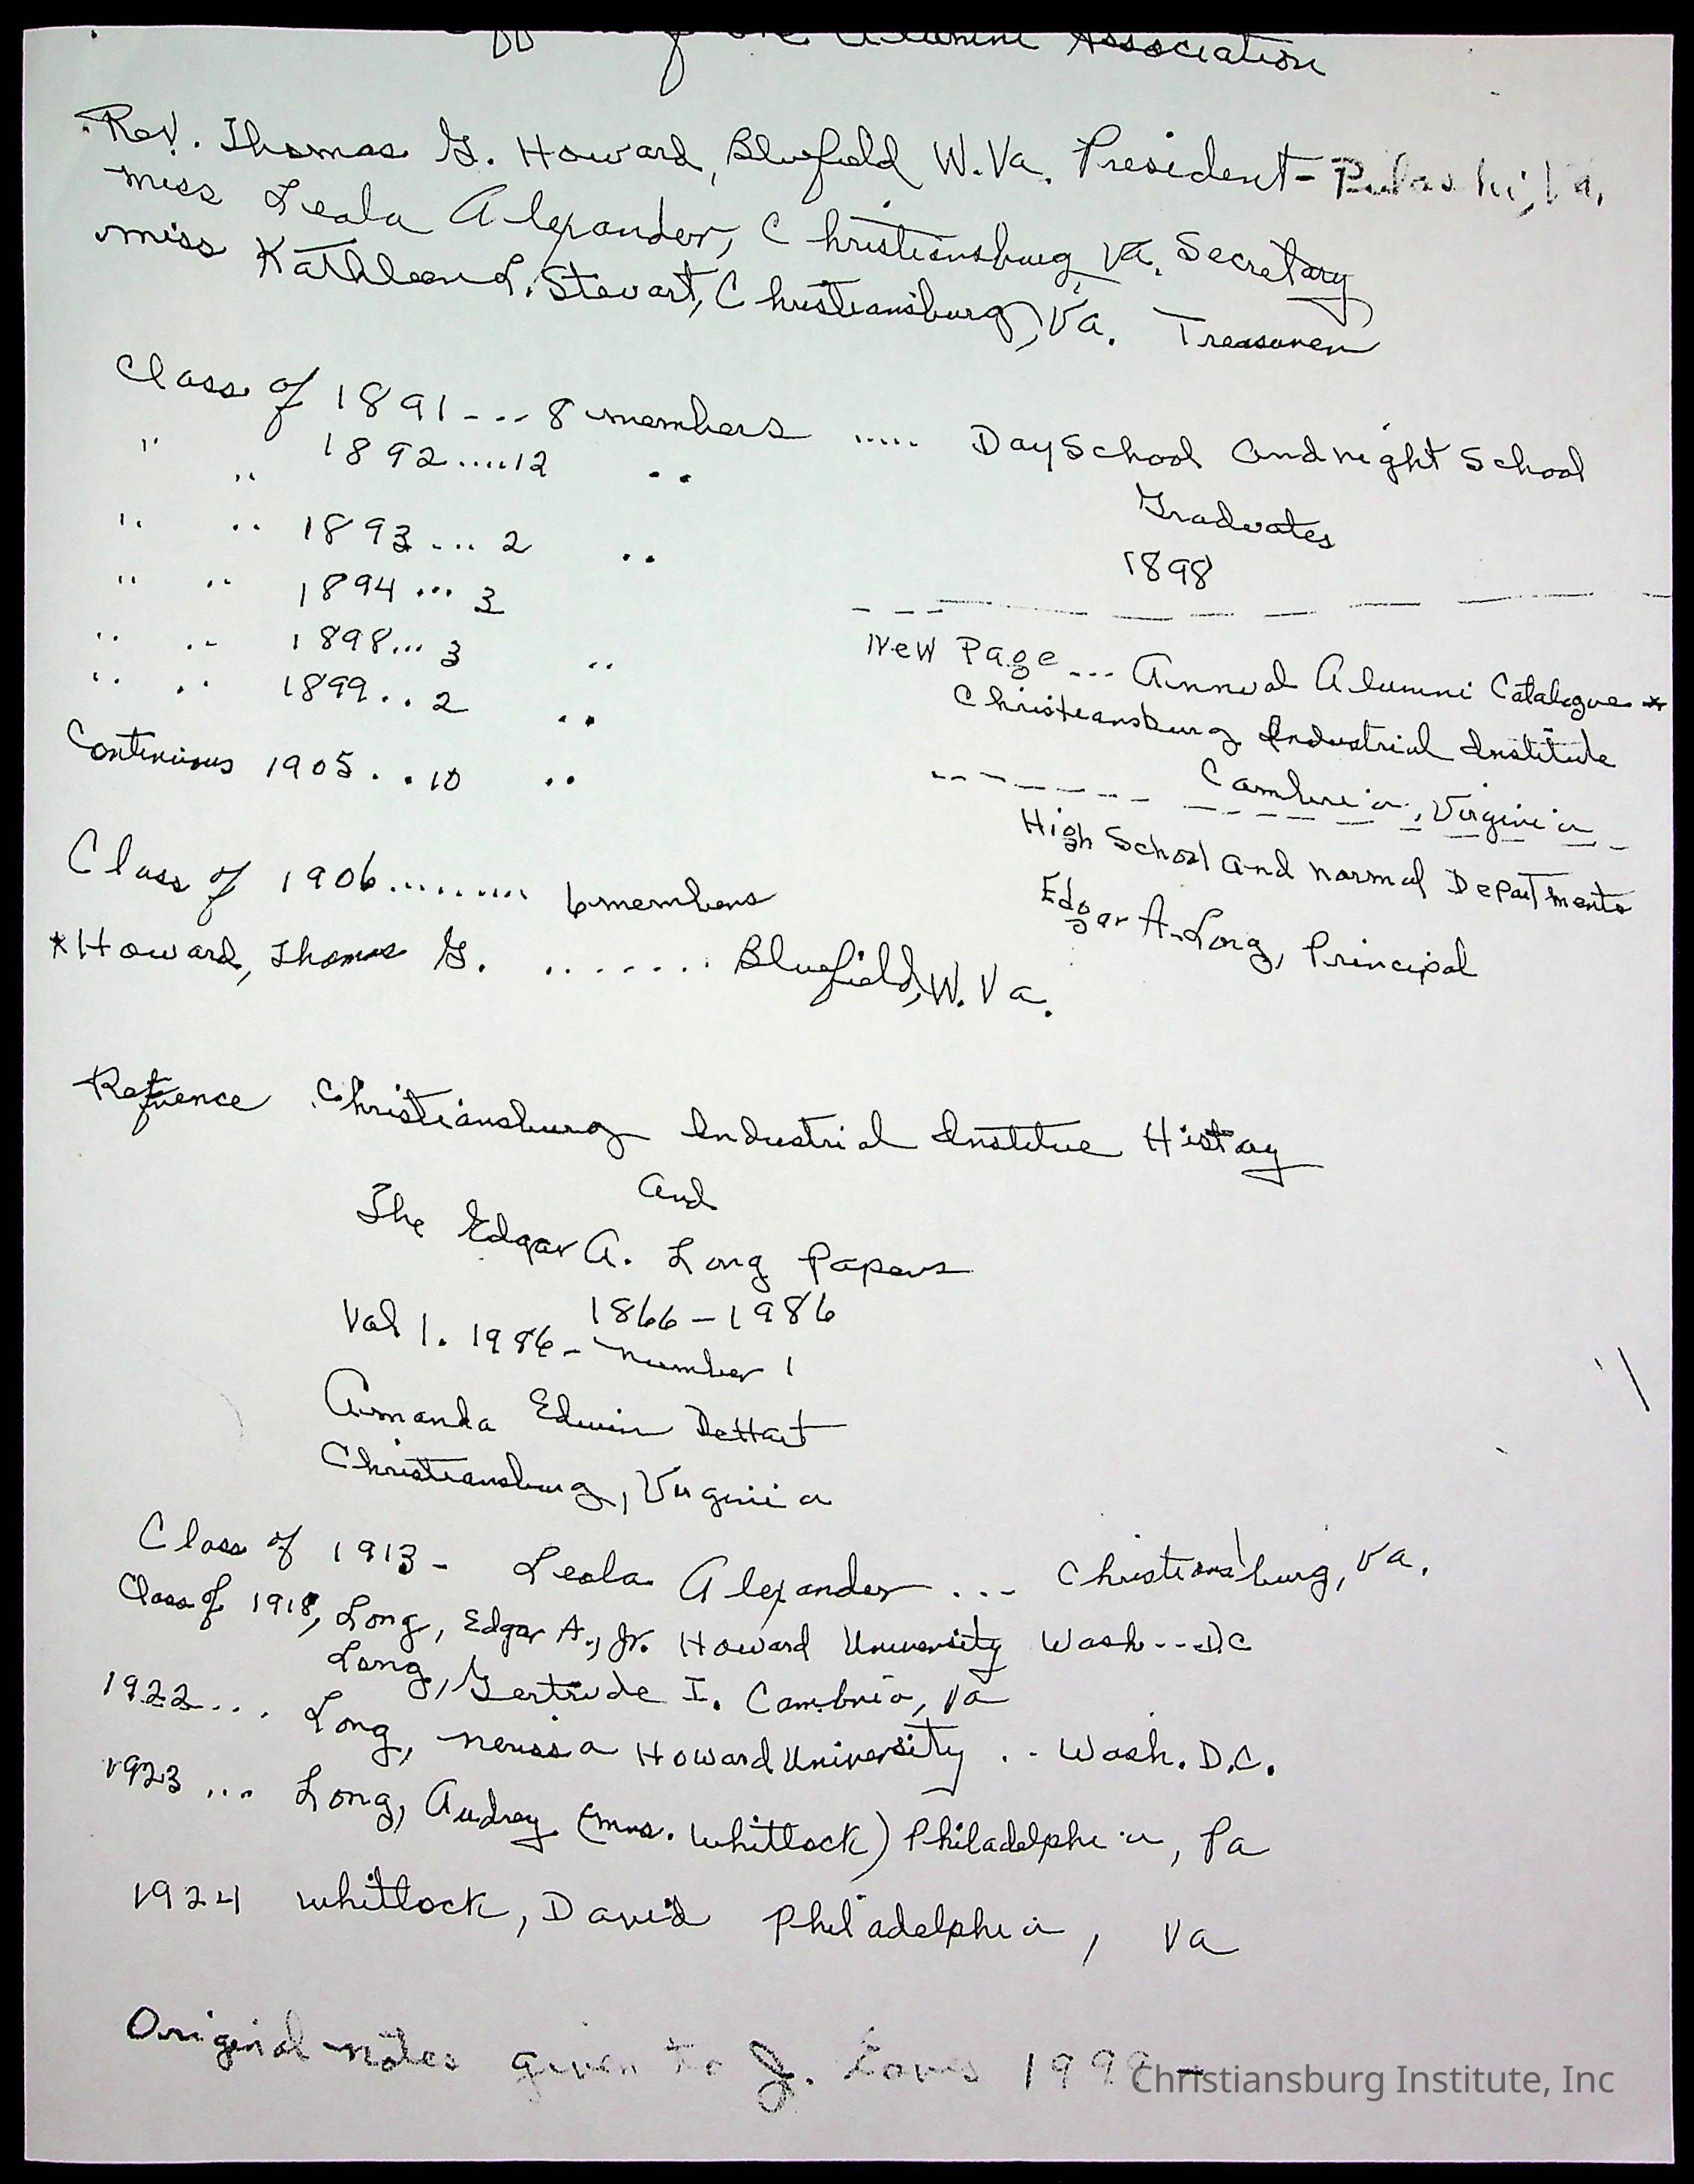 of the Alumni Association
Rev. Thomas G. Howard, Bluefield W.Va. President - Pulaski, Va.
Miss Leola Alexander, Christiansburg Va. Secretary
Miss Kathleen L. Stewart, Christiansburg, Va. Treasurer
Class of 1891 --- 8 members ..... Day School and night School
" " 1892.....12 "
Graduates
" " 1893.... 2 "
1898
" " 1894... 3
" " 1898... 3 "
New Page --- Annual Alumni Catalogue *
" " 1899.. 2 "
Christiansburg Industrial Institute
Continious 1905.. 10 "
Cambria, Virginia
High School and normal Departments
Class of 1906.......... 6 members
Edgar A. Long, Principal
*Howard, Thomas G. ........ Bluefield, W. Va.
Refrence Christiansburg Industrial Institue History
and
The Edgar A. Long Papers
1866-1986
Vol 1. 1986 - number 1
Amanda Edwin DeHart
Christiansburg, Virginia
Class of 1913 - Leola Alexander --- Christiansburg, Va.
Class of 1918, Long, Edgar A., Jr. Howard University Wash--DC
Long, Gertrude I. Cambria, Va
1922.... Long, Nerissa Howard University .. Wash. D.C.
1923 ... Long, Audrey (Mrs. Whitlock) Philadelphia, Pa
1924 Whitlock, David Philadelphia, Va
Original notes given to J. 199
Christiansburg Institute, Inc